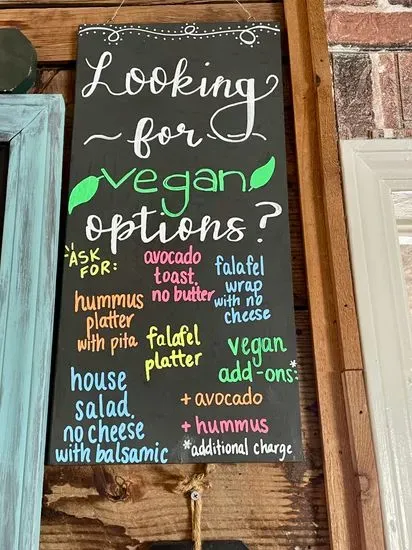 Looking
~ for ~
vegan
options?
ASK
FOR:
avocado
toast,
no butter
falafel
wrap
with no
cheese
hummus
platter
with pita
falafel
platter
vegan
add-ons:*
house
salad,
no cheese
with balsamic
+ avocado
+ hummus
*additional charge